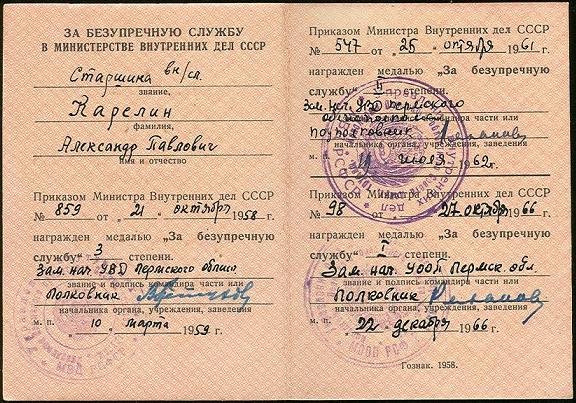 ЗА БЕЗУПРЕЧНУЮ СЛУЖБУ
В МИНИСТЕРСТВЕ ВНУТРЕННИХ ДЕЛ СССР
Старшина вн/сл.
звание,
Карелин
фамилия,
Александр Павлович
имя и отчество
Приказом Министра Внутренних дел СССР
№ 859 от „21„ октября 1958 г.
награжден медалью „За безупречную
службу“ 3 степени.
Зам. нач. УВД Пермского облисп.
звание и подпись командира части или
Полковник
начальника органа, учреждения, заведения
м. п. „10„ марта 1959 г.
Приказом Министра Внутренних дел СССР
№ 547 от „25„ октября 1961 г.
награжден медалью „За безупречную
службу“ II степени.
Зам. нач. УВД Пермского
звание и подпись командира части или
подполковник
начальника органа, учреждения, заведения
м. п. „19„ июля 1962 г.
Приказом Министра Внутренних дел СССР
№ 98 от „27 октября 1966 г.
награжден медалью „За безупречную
службу“ I степени.
Зам. нач. УООП Пермск. обл.
звание и подпись командира части или
Полковник
начальника органа, учреждения, заведения
м. п. „22„ декабря 1966 г.
Гознак. 1958.